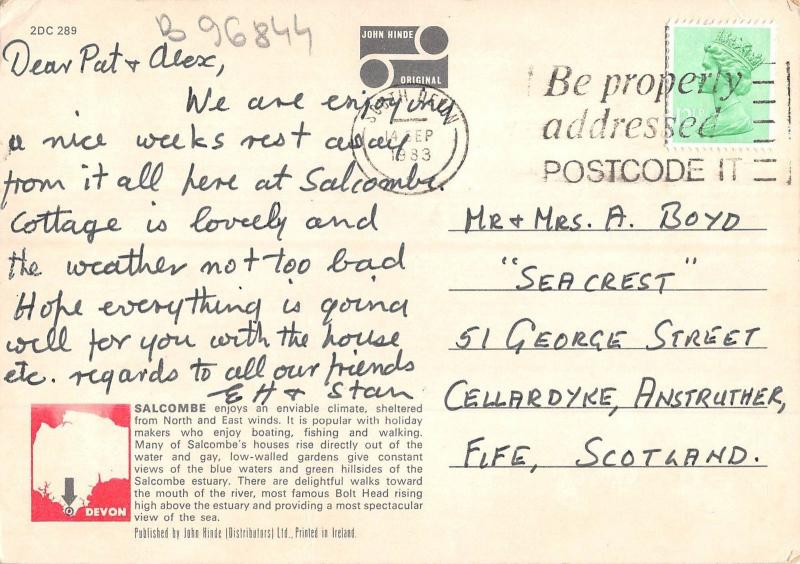 2DC 289
B 96844
JOHN HINDE
ORIGINAL
Dear Pat & Alex,
We are enjoying
a nice weeks rest away
from it all here at Salcombe.
Cottage is lovely and
the weather not too bad
Hope everything is going
well for you with the house
etc. regards to all our friends
& Stan
SOUTH DEVON
14 SEP
1983
Be properly
addressed
POSTCODE IT
MR & MRS. A. BOYD
"SEACREST"
51 GEORGE STREET
CELLARDYKE, ANSTRUTHER,
FIFE, SCOTLAND.
SALCOMBE enjoys an enviable climate, sheltered
from North and East winds. It is popular with holiday
makers who enjoy boating, fishing and walking.
Many of Salcombe's houses rise directly out of the
water and gay, low-walled gardens give constant
views of the blue waters and green hillsides of the
Salcombe estuary. There are delightful walks toward
the mouth of the river, most famous Bolt Head rising
high above the estuary and providing a most spectacular
view of the sea.
DEVON
Published by John Hinde (Distributors) Ltd., Printed in Ireland.